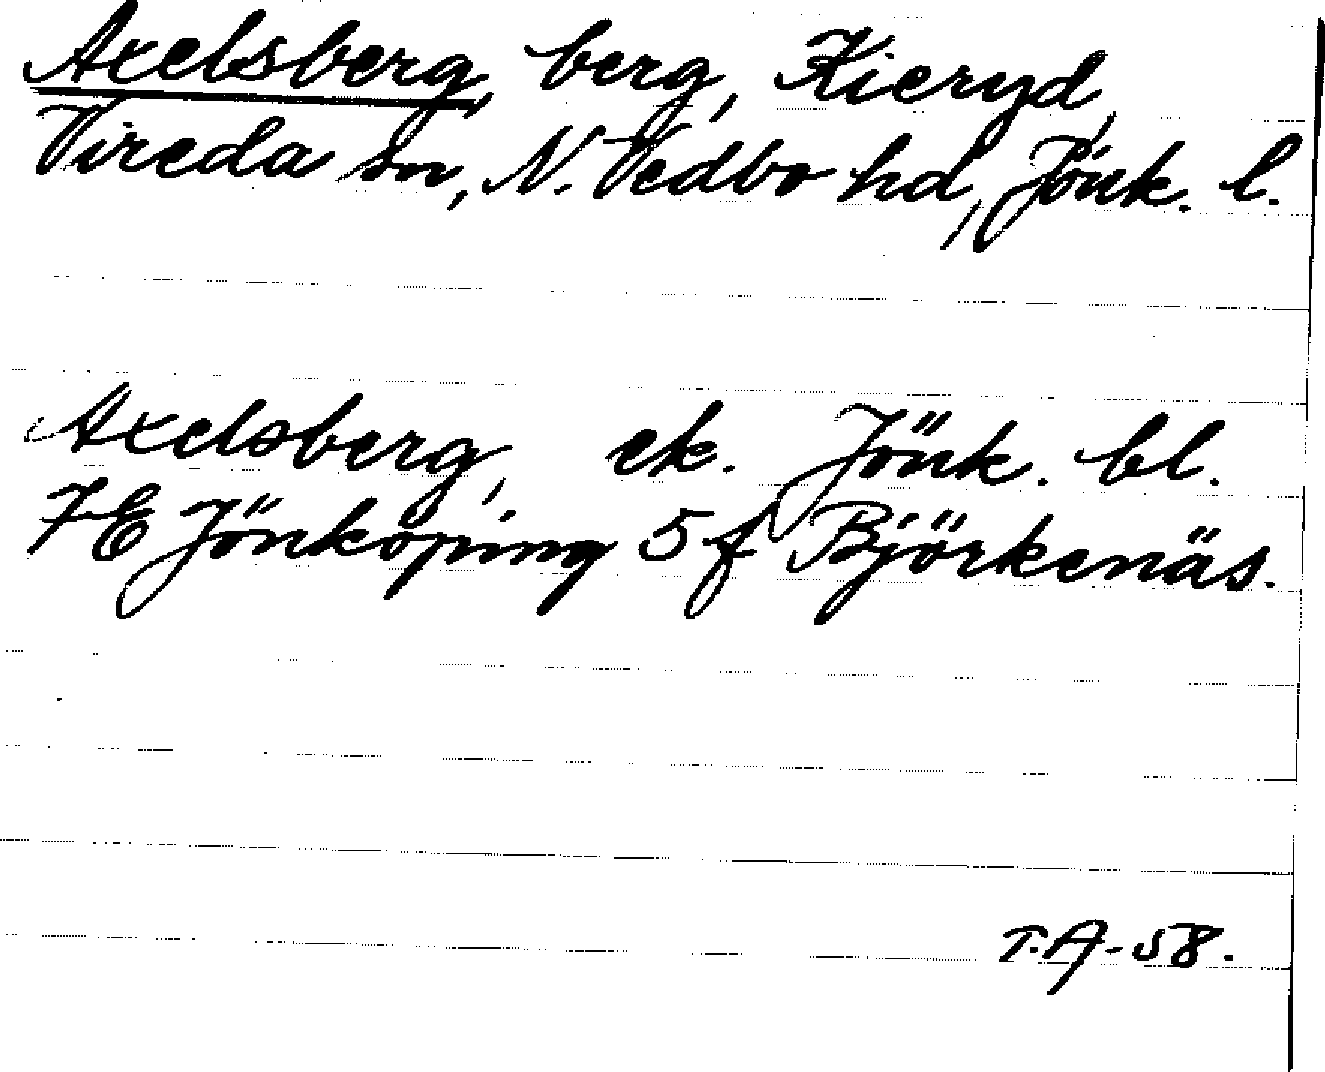 Axelsberg, berg, Kieryd,
Vireda sn, N. Vedbo hd, Jönk. l.
Axelsberg, ek. Jönk. bl.
7E Jönköping 5f Björkenäs.
T.A-58.